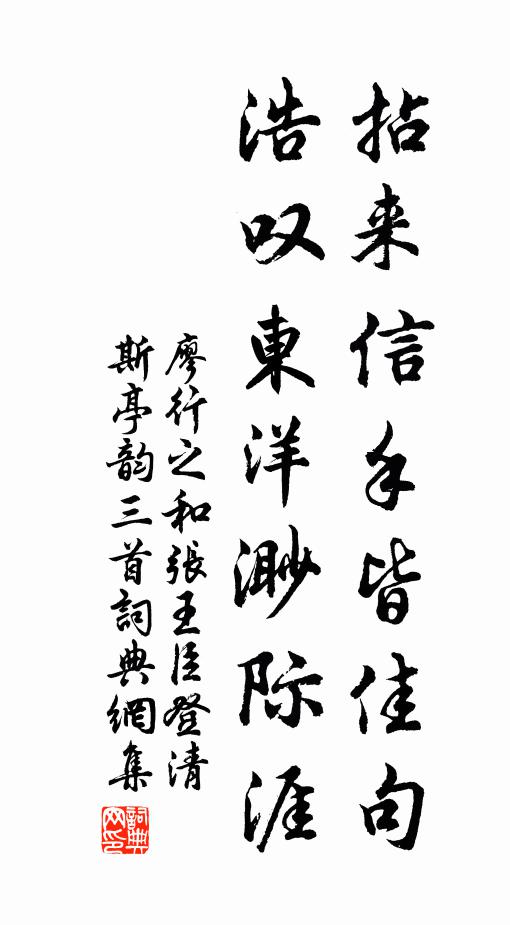 拈来信手皆佳句
浩叹東洋渺際涯
廖行之和張王臣登清
斯亭韵三首詞典網集
詞典网印